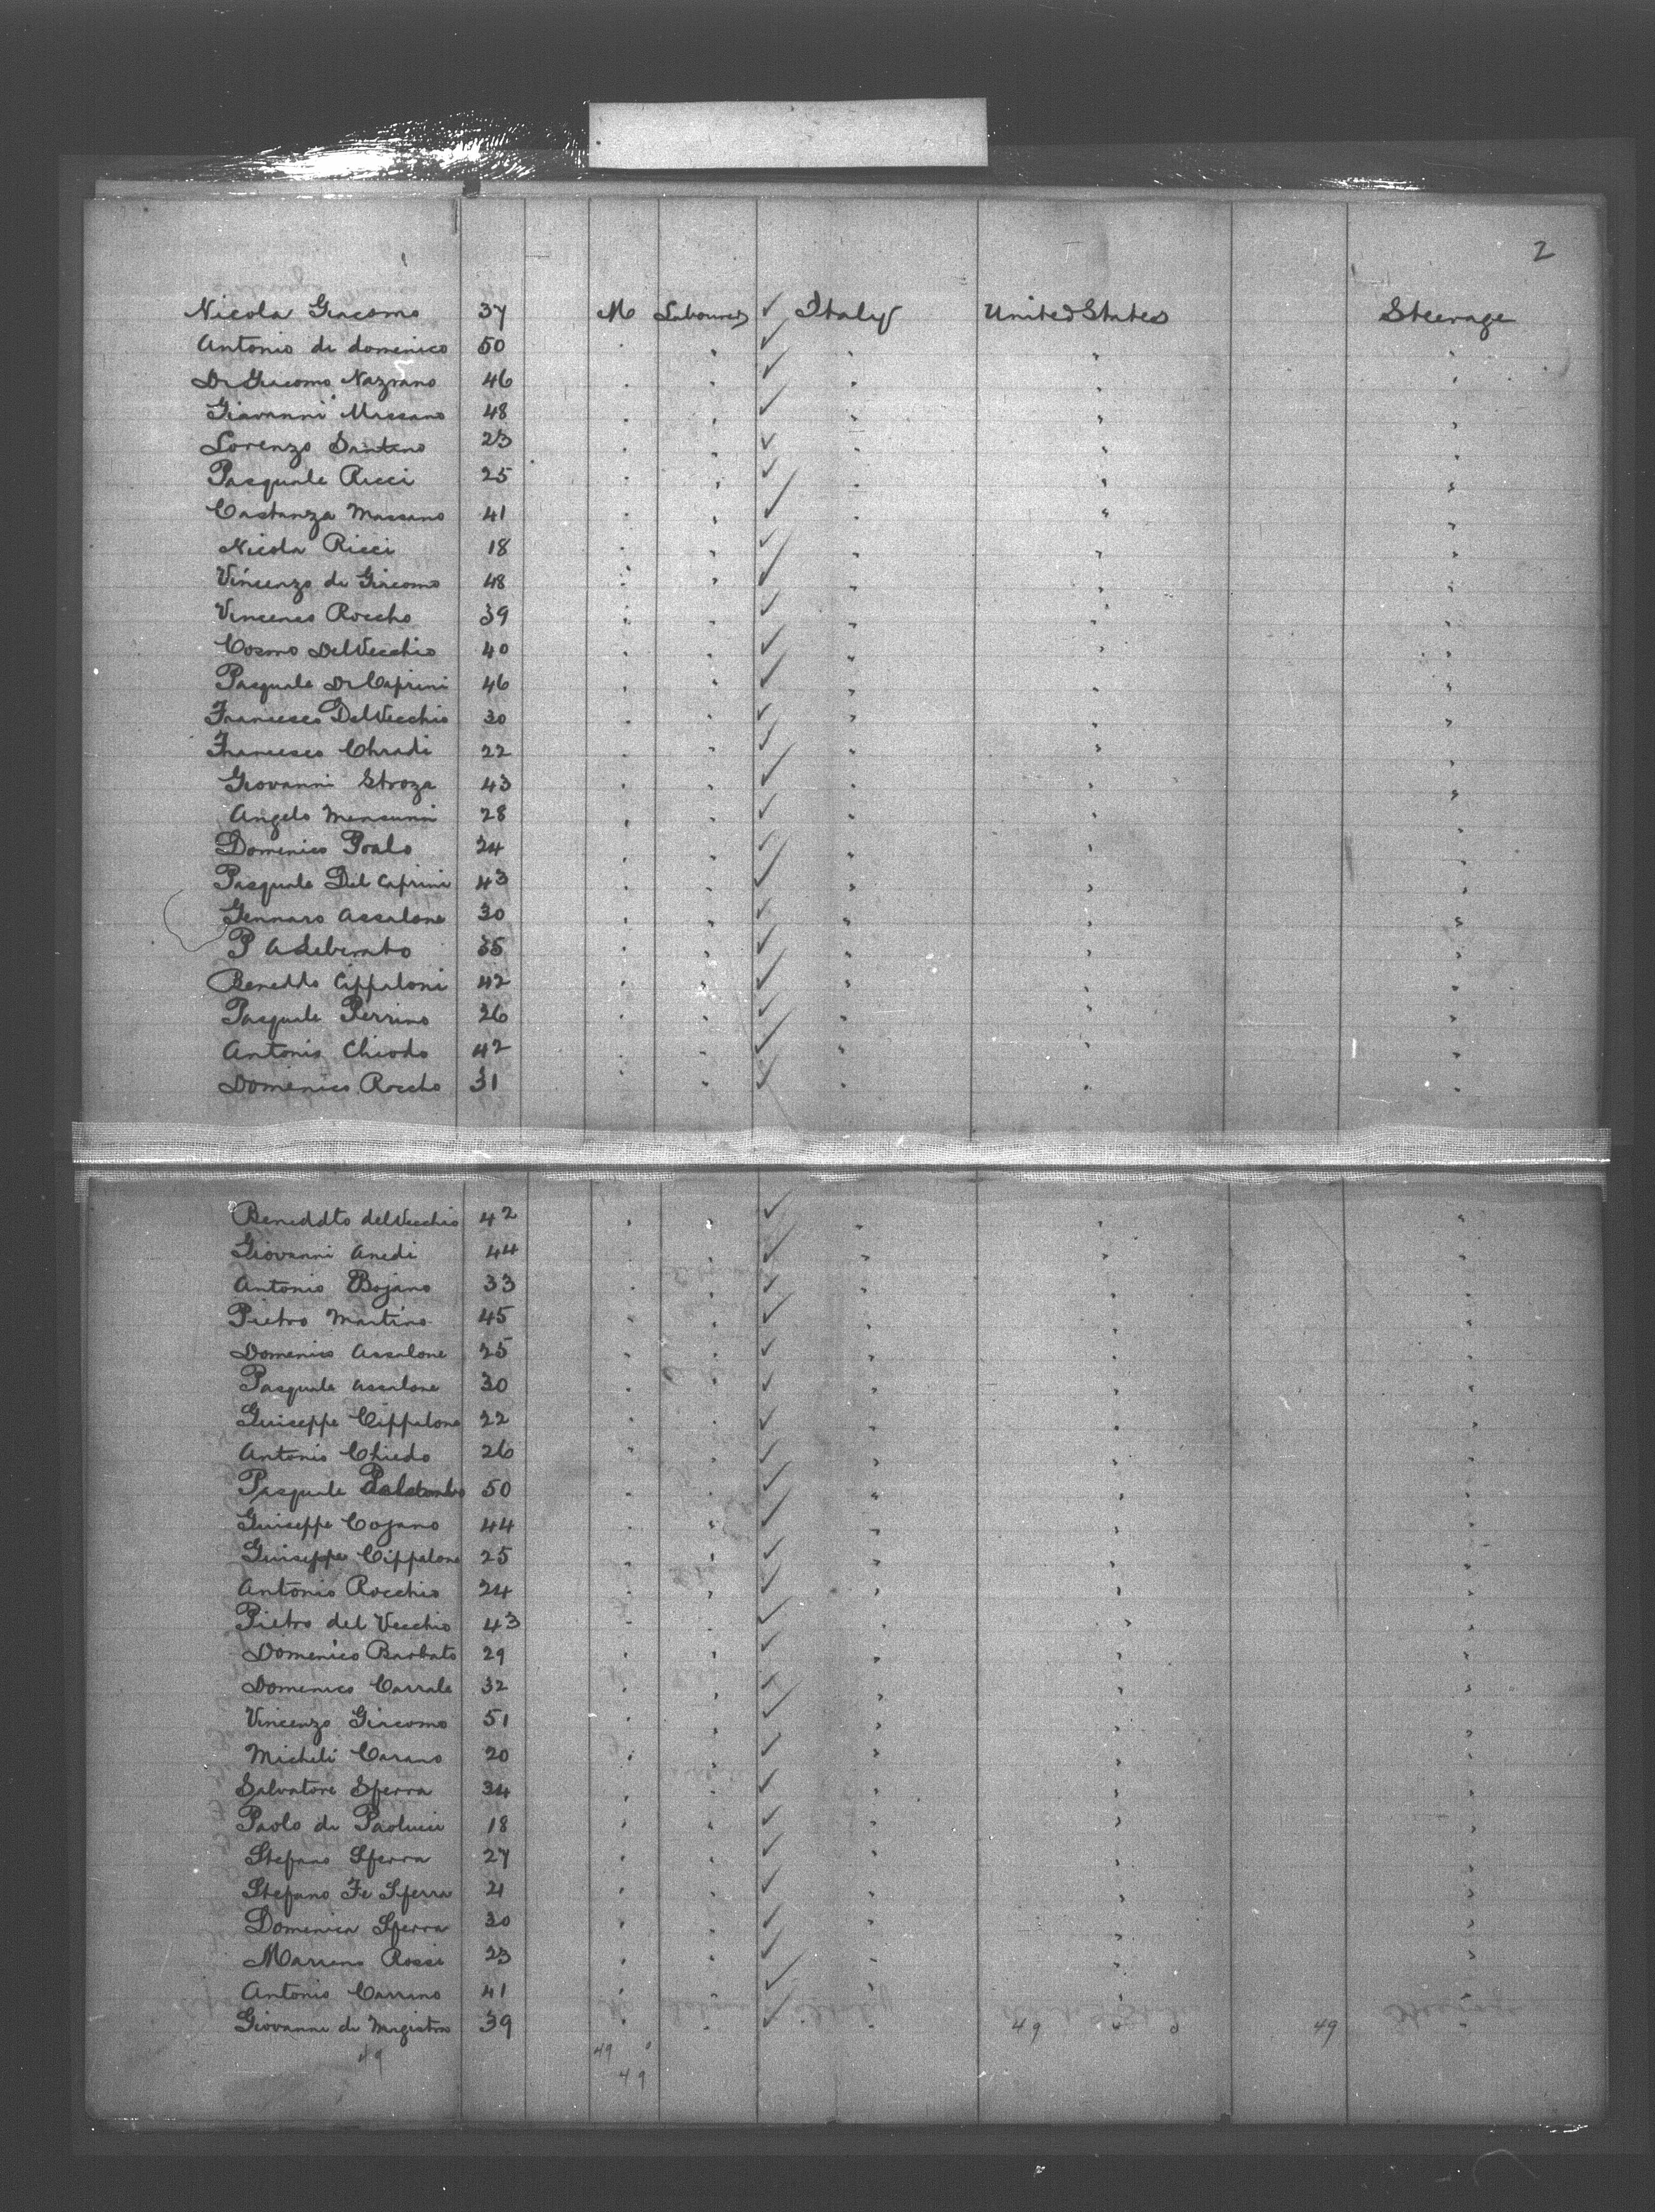 2
Nicola Giacomo 37 M Labourer ✓ Italy United States Steerage
Antonio di domenico 50 " " ✓ " " "
Di Giacomo Nazrano 46 " " ✓ " " "
Giovanni Massano 48 " " ✓ " " "
Lorenzo Santino 23 " " ✓ " " "
Pasquale Ricci 25 " " ✓ " " "
Castanza Massano 41 " " ✓ " " "
Nicola Ricci 18 " " ✓ " " "
Vincenzo di Giacomo 48 " " ✓ " " "
Vincenco Roccho 39 " " ✓ " " "
Cosmo DelVecchio 40 " " ✓ " " "
Pasquale Di Caprini 46 " " ✓ " " "
Francesco DelVecchio 30 " " ✓ " " "
Francesco Chradi 22 " " ✓ " " "
Giovanni Stroza 43 " " ✓ " " "
Angelo 28 " " ✓ " " "
Domenico Poalo 24 " " ✓ " " "
Pasquale Del Caprini 43 " " ✓ " " "
Gennaro Assalone 30 " " ✓ " " "
P 35 " " ✓ " " "
Beneddo Cippaloni 42 " " ✓ " " "
Pasquale Perrino 26 " " ✓ " " "
Antonio Chiodo 42 " " ✓ " " "
Domenico Roccho 31 " " ✓ " " "
Beneddto delVecchio 42 " " ✓ " " "
Giovanni Anedi 44 " " ✓ " " "
Antonio Bojano 33 " " ✓ " " "
Pietro Martino 45 " " ✓ " " "
Domenico Assalone 25 " " ✓ " " "
Pasquale Assalone 30 " " ✓ " " "
Guiseppe Cippalone 22 " " ✓ " " "
Antonio Chiedo 26 " " ✓ " " "
Pasquale 50 " " ✓ " " "
Guiseppe Cojano 44 " " ✓ " " "
Guiseppe Cippalone 25 " " ✓ " " "
Antonio Rocchio 24 " " ✓ " " "
Pietro del Vecchio 43 " " ✓ " " "
Domenico Barbato 29 " " ✓ " " "
Domenico Carrale 32 " " ✓ " " "
Vincenzo Giacomo 51 " " ✓ " " "
Micheli Carano 20 " " ✓ " " "
Salvatore Sferra 34 " " ✓ " " "
Paolo di Paolucci 18 " " ✓ " " "
Stefano Sferra 27 " " ✓ " " "
Stefano Fe Sferra 21 " " ✓ " " "
Domenica Sferra 30 " " ✓ " " "
Marrano Rossi 23 " " ✓ " " "
Antonio Carrano 41 " " ✓ " " "
Giovanni di Magistro 39 " " ✓ " 49 " 49 "
49 49
49